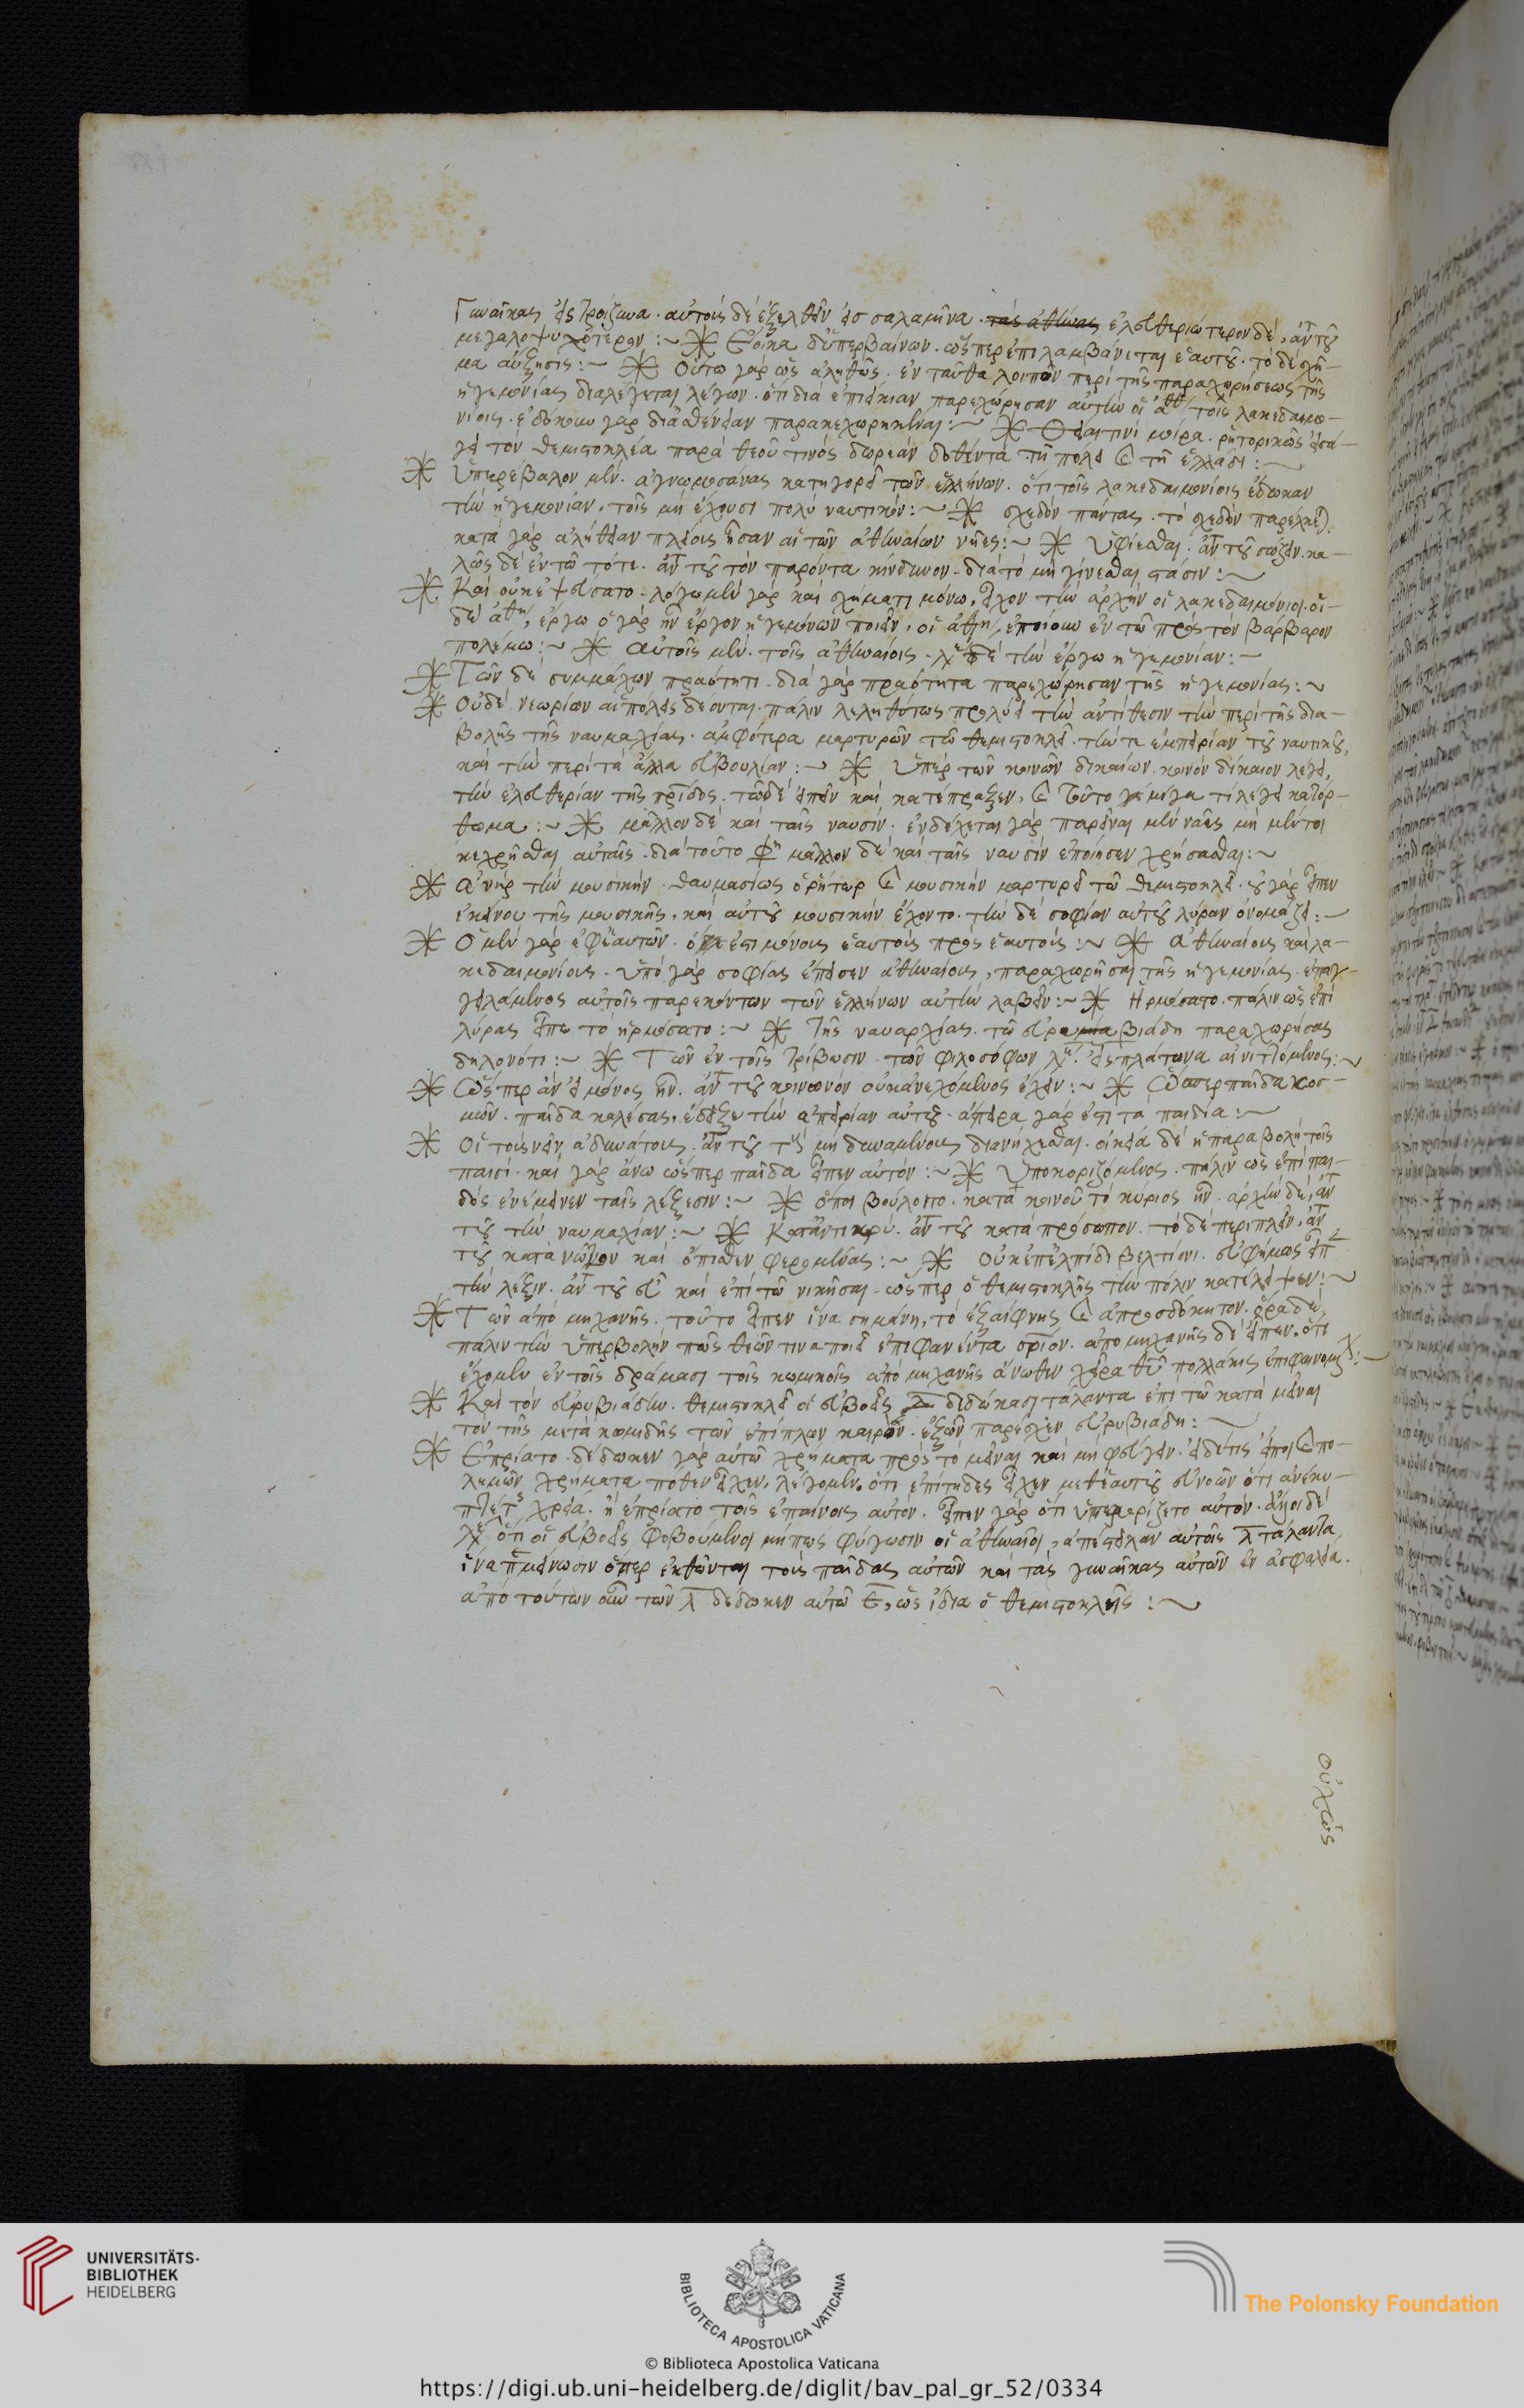 γυναῖκας εἰς τροιζῆνα. αὐτοὺς δὲ ἐξελθεῖν εἰς σαλαμῖνα. τὰς ἀθήνας ἐλευθεριώτερον δὲ, ἀντὶ τοῦ
μεγαλοψυχότερον :~ ※ ἔοικα δ' ὑπερβαίνων. ὥσπερ ἐπιλαμβάνεται ἑαυτοῦ. τὸ δὲ σχῆ-
μα αὔξησις :~ ※ οὕτω γὰρ ὡς ἀληθῶς. ἐνταῦθα λοιπὸν περὶ τῆς παραχωρήσεως τῆς
ἡγεμονίας διαλέγεται λέγων. ὅτι διὰ ἐπιείκιαν παρεχώρησαν αὐτὴν οἱ ἀθη τοῖς λακεδαιμο-
νίοις. ἐδόκουν γὰρ δι' ἀσθένειαν παρακεχωρηκέναι :~ ※ θείᾳ τινὶ μοίρᾳ. ῥητορικῶς εἰσά-
γει τὸν θεμιστοκλέα παρὰ θεοῦ τινὸς δωρεὰν δοθέντα τῇ πόλει καὶ τῇ ἑλλάδι :~
※ ὑπερέβαλον μὲν. ἀγνωμοσύνας κατηγορεῖ τῶν ἑλλήνων. ὅτι τοῖς λακεδαιμονίοις ἔδωκαν
τὴν ἡγεμονίαν. τοῖς μὴ ἔχουσι πολὺ ναυτικόν :~ ※ σχεδὸν πάντας. τὸ σχεδὸν παρέλκει.
κατὰ γὰρ ἀλήθειαν πλείους ἦσαν αἱ τῶν ἀθηναίων νῆες :~ ※ ὑφίεσθαι. ἀντὶ τοῦ σώζειν. κα-
λῶς δὲ ἐν τῷ τότε. ἀντὶ τοῦ τὸν παρόντα κίνδυνον. διὰ τὸ μὴ γίνεσθαι στάσιν :~
※ καὶ οὐκ ἐψεύσατο. λόγῳ μὲν γὰρ καὶ σχήματι μόνῳ, εἶχον τὴν ἀρχὴν οἱ λακεδαιμόνιοι. οἱ
δὲ ἀθη, ἔργῳ ὃ γὰρ ἦν ἔργον ἡγεμόνων ποιεῖν, οἱ ἀθη, ἐποίουν ἐν τῷ πρὸς τὸν βάρβαρον
πολέμῳ :~ ※ αὐτοῖς μὲν. τοῖς ἀθηναίοις. λέγει δὲ τὴν ἔργῳ ἡγεμονίαν :~
※ τῶν δὲ συμμάχων πραότητι. διὰ γὰρ πραότητα παρεχώρησαν τῆς ἡγεμονίας :~
※ οὐδὲ νεωρίων αἱ πόλεις δέονται. πάλιν λεληθότως προλύει τὴν ἀντίθεσιν τὴν περὶ τῆς δια-
βολῆς τῆς ναυμαχίας. ἀμφότερα μαρτυρῶν τῷ θεμιστοκλεῖ. τήν τε ἐμπειρίαν τοῦ ναυτικοῦ,
καὶ τὴν περὶ τὰ ἄλλα εὐβουλίαν :~ ※ ὑπὲρ τῶν κοινῶν δικαίων. κοινὸν δίκαιον λέγει,
τὴν ἐλευθερίαν τῆς πρίδος. τῷ δὲ εἰπεῖν καὶ κατέπραξεν, καὶ τοῦτο μέγα τι λέγει κατόρ-
θωμα :~ ※ μᾶλλον δὲ καὶ ταῖς ναυσίν. ἐνδέχεται γὰρ παρεῖναι μὲν ναῦς μὴ μέντοι
κεχρῆσθαι αὐταῖς. διὰ τοῦτο φη μᾶλλον δὲ καὶ ταῖς ναυσὶν ἐποίησεν χρήσασθαι :~
※ ἀνὴρ τὴν μουσικήν. θαυμασίως ὁ ῥήτωρ καὶ μουσικὴν μαρτυρεῖ τῷ θεμιστοκλεῖ. οὐ γὰρ εἶπεν
ἐκείνου τῆς μουσικῆς, καὶ αὐτοῦ μουσικὴν ἔχοντο. τὴν δὲ σοφίαν αὐτοῦ λύραν ὀνομάζει :~
※ ὁ μὲν γὰρ ἐφ' ἑαυτῶν. ὅ ἐστι μόνους ἑαυτοὺς πρὸς ἑαυτούς :~ ※ ἀθηναίους καὶ λα-
κεδαιμονίους. ὑπὸ γὰρ σοφίας ἔπεισεν ἀθηναίους, παραχωρῆσαι τῆς ἡγεμονίας. ἐπαγ-
γειλάμενος αὐτοῖς παρ' ἑκόντων τῶν ἑλλήνων αὐτὴν λαβεῖν :~ ※ ἡρμόσατο. πάλιν ὡς ἐπὶ
λύρας εἶπε τὸ ἡρμόσατο :~ ※ τῆς ναυαρχίας. τῷ εὐρυβιάδῃ παραχωρήσας
δηλονότι :~ ※ τῶν ἐν τοῖς τρίβωσιν. τῶν φιλοσόφων λέγει. εἰς πλάτωνα αἰνιττόμενος :~
※ ὥσπερ ἂν εἰ μόνος ἦν. ἀντὶ τοῦ κοινωνὸν οὐκ ἀνεχόμενος ἔχειν :~ ※ ὥσπερ παῖδα κοσ-
μῶν. παῖδα καλέσας, ἔδειξε τὴν ἀπειρίαν αὐτοῦ. ἄπειρα γάρ ἐστι τὰ παιδία :~
※ οἱ τοῖς νεῖν ἀδυνάτοις. ἀντὶ τοῦ τοῖς μὴ δυναμένοις διανήχεσθαι. οἰκεία δὲ ἡ παραβολὴ τοῖς
παισί. καὶ γὰρ ἄνω ὥσπερ παῖδα εἶπεν αὐτόν :~ ※ ὑποκοριζόμενος. πάλιν ὡς ἐπὶ παι-
δὸς ἐνέμεινεν ταῖς λέξεσιν :~ ※ ὅποι βούλοιτο. κατὰ κοινοῦ τὸ κύριος ἦν. ἀρχὴν δὲ, ἀντὶ
τοῦ τὴν ναυμαχίαν :~ ※ καταντικρύ. ἀντὶ τοῦ κατὰ πρόσωπον. τὸ δὲ περιπλεῖν, ἀντὶ
τοῦ κατὰ νῶτον καὶ ὄπισθεν φερομένας :~ ※ οὐκ ἐπ' ἐλπίδι βελτίονι. εὐφήμως εἶπε
τὴν λέξιν. ἀντὶ τοῦ εὖ καὶ ἐπὶ τῷ νικῆσαι. ὥσπερ ὁ θεμιστοκλῆς τὴν πόλιν κατέλειψεν :~
※ τῶν ἀπὸ μηχανῆς. τοῦτο εἶπεν ἵνα σημάνῃ, τὸ ἐξαίφνης καὶ ἀπροσδόκητον. ὅρα δὲ
πάλιν τὴν ὑπερβολὴν πῶς θεῶν τινα ποιεῖ ἐπιφανέντα σριον. ἀπὸ μηχανῆς δὲ εἶπεν, ὅτι
ἔχομεν ἐν τοῖς δράμασι τοῖς κωμικοῖς ἀπὸ μηχανῆς ἄνωθεν χεῖρα θεοῦ πολλάκις ἐπιφαινομέ :~
※ καὶ τὸν εὐρυβιάδην. θεμιστοκλεῖ οἱ εὐβοεῖς λ διδώκασι τάλαντα ἐπὶ τῷ κατὰ μεῖναι
τὸν τῆς μετὰ κομιδῆς τῶν ἐπίπλων καιρόν. ἐξ ὧν παρέσχεν εὐρυβιάδῃ :~
※ ἐπρίατο. δέδωκεν γὰρ αὐτῷ χρήματα πρὸς τὸ μεῖναι καὶ μὴ φεύγειν. εἰ δέ τις εἴποι καὶ πο-
λεμῶν χρήματα πόθεν εἶχεν, λέγομεν. ὅτι ἐπίτηδες εἶχεν μεθ' ἑαυτοῦ συνοῶν ὅτι ἀνέκυ-
πτε τις χρεία. ἢ ἐπρίατο τοῖς ἐπαίνοις αὐτόν. εἶπεν γὰρ ὅτι ὑπεκορίζετο αὐτόν. ἄλλοι δὲ
λέγει ὅτι οἱ εὐβοεῖς φοβούμενοι μήπως φύγωσιν οἱ ἀθηναῖοι, ἀπέστειλαν αὐτοῖς λ τάλαντα,
ἵνα περιμείνωσιν ὅπερ ἐκθῶνται τοὺς παῖδας αὐτῶν καὶ τὰς γυναῖκας αὐτῶν ἐν ἀσφαλείᾳ.
ἀπὸ τούτων οὖν τῶν λ δέδωκεν αὐτῷ ε, ὡς ἴδια ὁ θεμιστοκλῆς :~
οὐχ ὡς
UNIVERSITÄTS-
BIBLIOTHEK
HEIDELBERG
BIBLIOTECA APOSTOLICA VATICANA
The Polonsky Foundation
© Biblioteca Apostolica Vaticana
https://digi.ub.uni-heidelberg.de/diglit/bav_pal_gr_52/0334